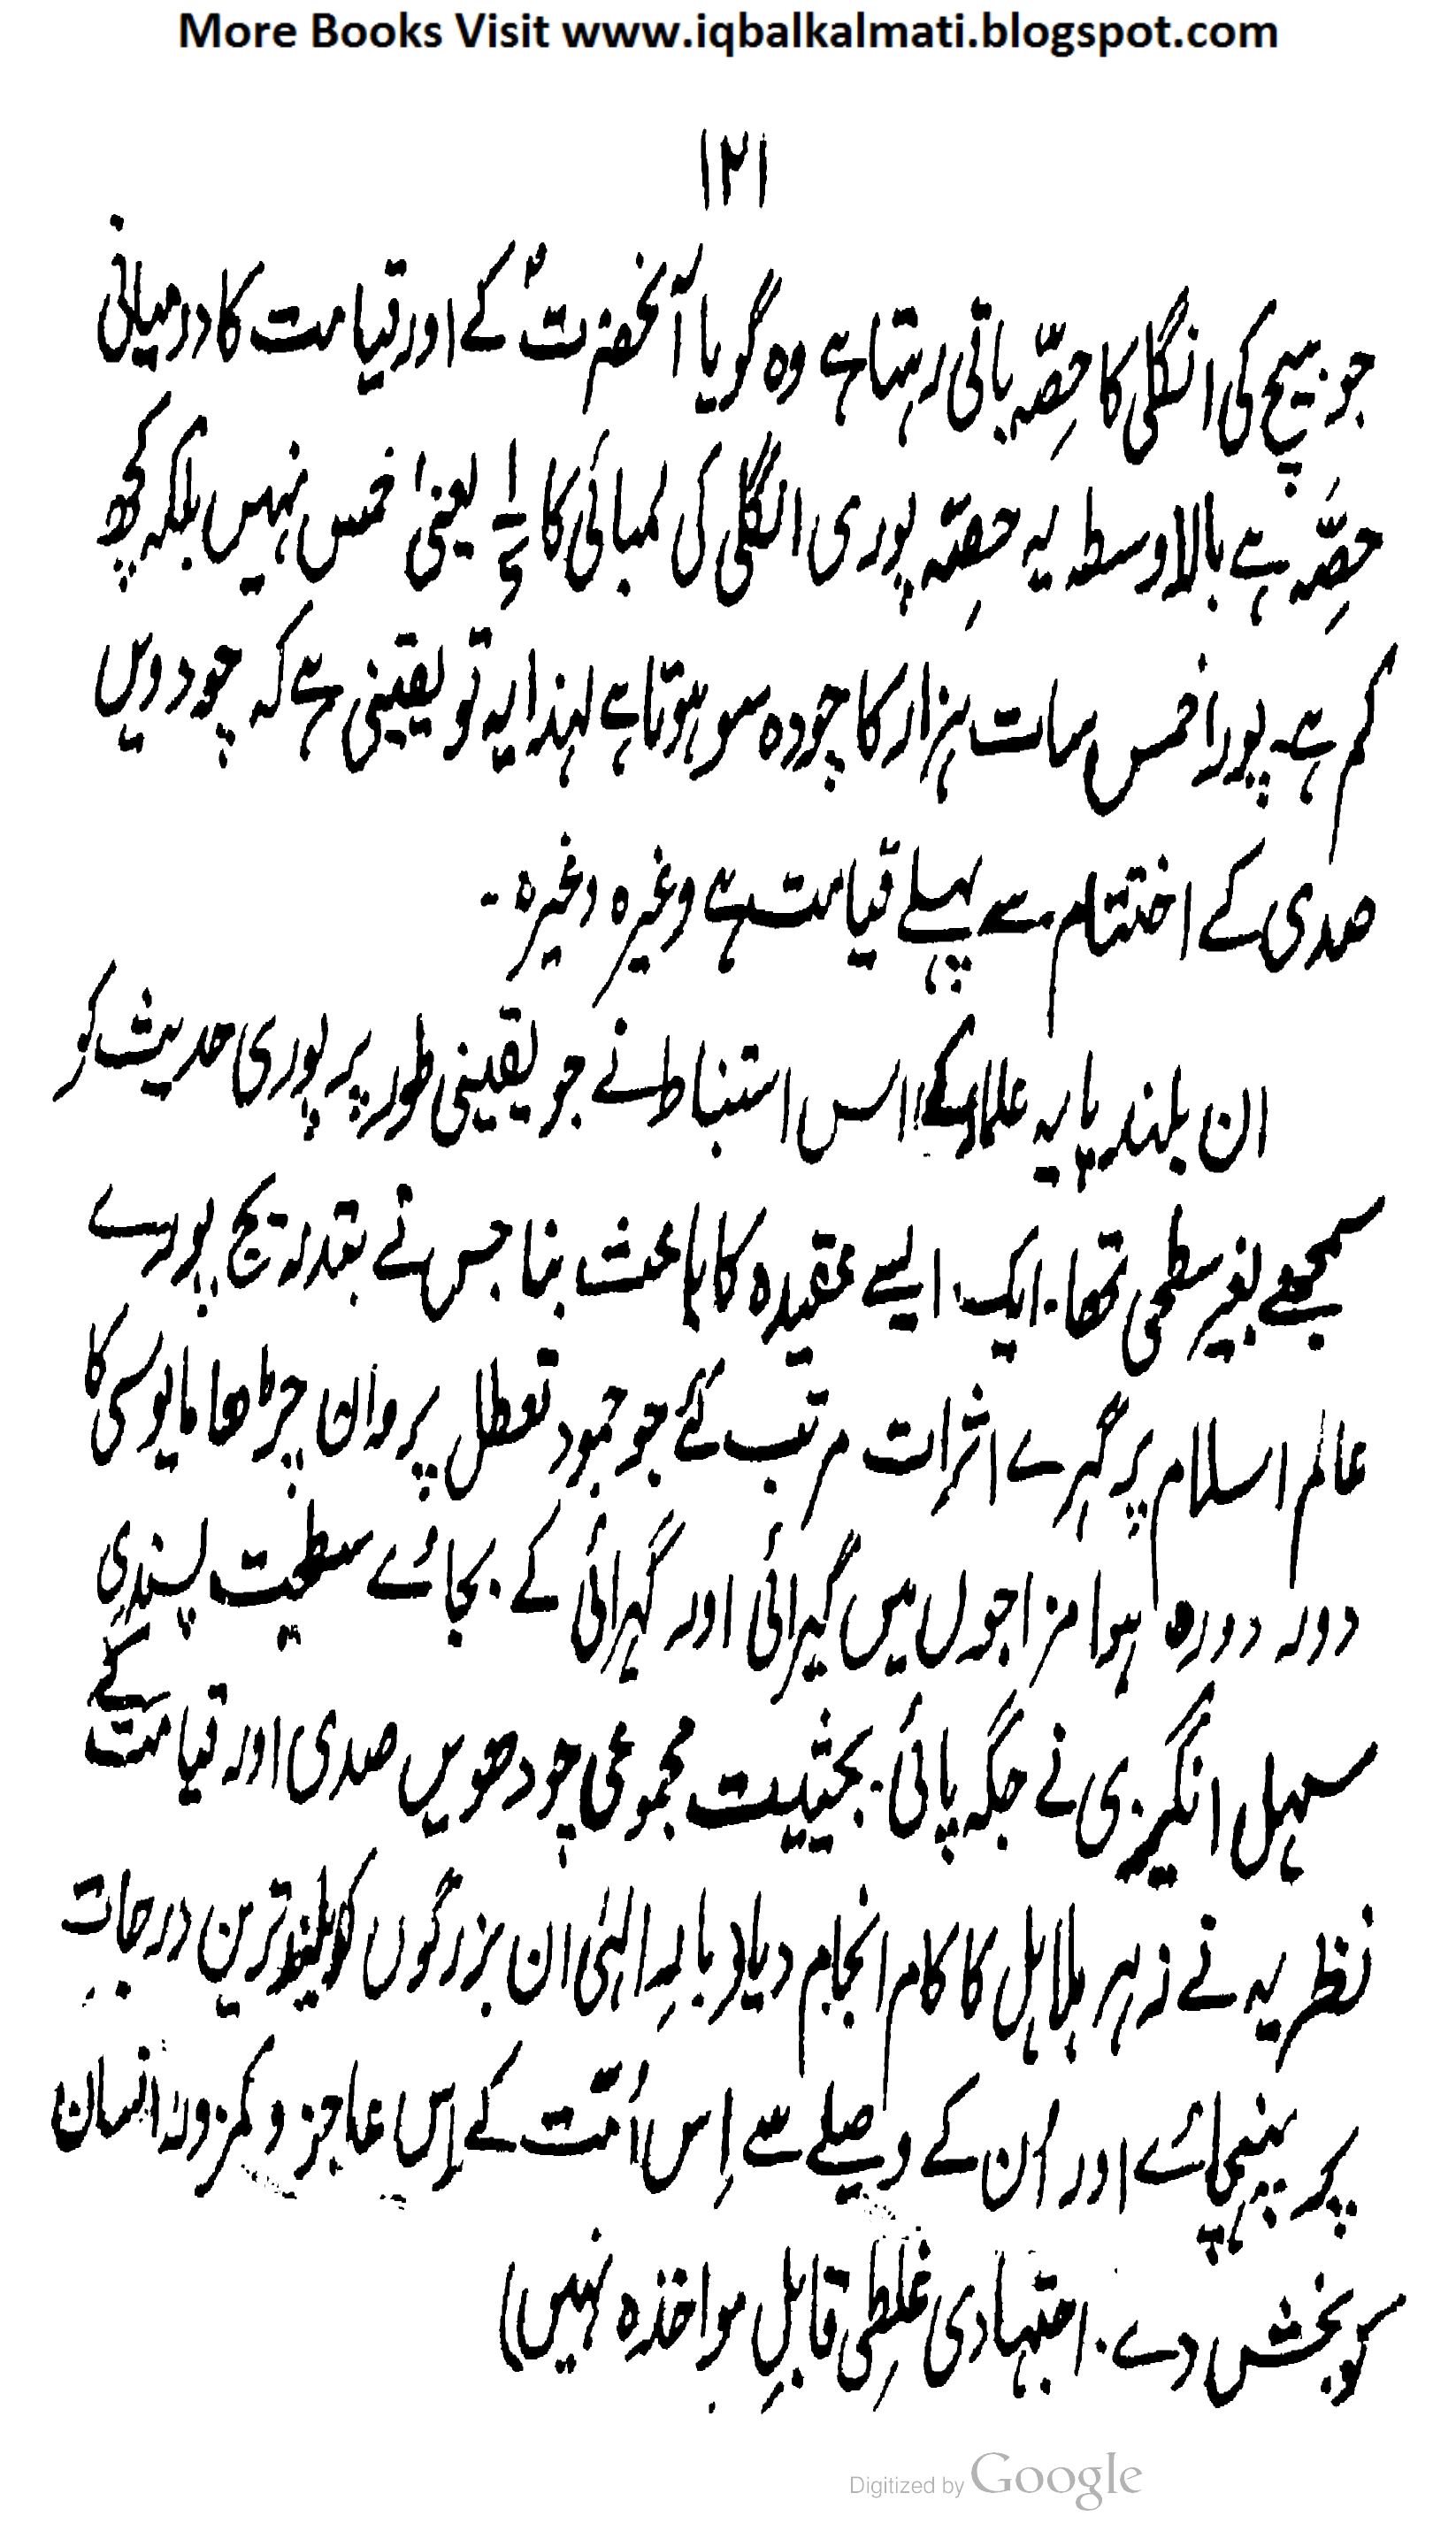 More Books Visit www.iqbalkalmati.blogspot.com
۱۲۱
جو بیچ کی انگلی کا حِصّہ باقی رہتا ہے وہ گویا آنحضرتؐ کے اور قیامت کا درمیانی
حِصّہ ہے بالاوسط یہ حِصّہ پوری انگلی کی لمبائی کا ۱/۵ یعنی خمس نہیں بلکہ کچھ
کم ہے۔ پورا خمس سات ہزار کا چودہ سو ہوتا ہے لہذا یہ تو یقینی ہے کہ چودویں
صدی کے اختتام سے پہلے قیامت ہے وغیرہ وغیرہ ۔
ان بلند پایہ علماء کے اس استنباط نے جو یقینی طور پر پوری حدیث کو
سمجھے بغیر سطحی تھا۔ ایک ایسے عقیدہ کا باعث بنا جس نے بتدریج پورے
عالم اسلام پر گہرے اثرات مرتب کئے جو جمود تعطل پروان چڑھا مایوسی کا
دور دورہ ہوا مزاجوں میں گیرائی اور گہرائی کے بجائے سطحیت پسندی
سہل انگیزی نے جگہ پائی۔ بحثییت مجموعی چودھویں صدی اور قیامت کے
نظریہ نے زہر ہلاہل کا کام انجام دیا (بارِ الہٰی ان بزرگوں کو بلند ترین درجات
پر پہنچائے اور اُن کے وصیلے سے اِس اُمّت کے اِس عاجز و کمزور انسان
کو بخش دے۔ اجتہادی غلطِی قابلِ مواخذہ نہیں)
Digitized by Google